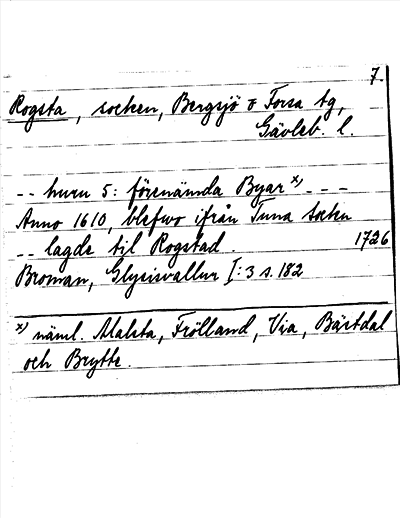 7.
Rogsta, socken, Bergsjö o Forsa tg,
Gävleb. l.
-- huru 5: förenämda Byar x) - - -
Anno 1610, blefwo ifrån Tuna Socken
-- lagde til Rogstad. 1726
Broman, Glysisvallur I:3 s. 182
x) näml. Alalsta, Frölland, Via, Bästdal
och Brytte.